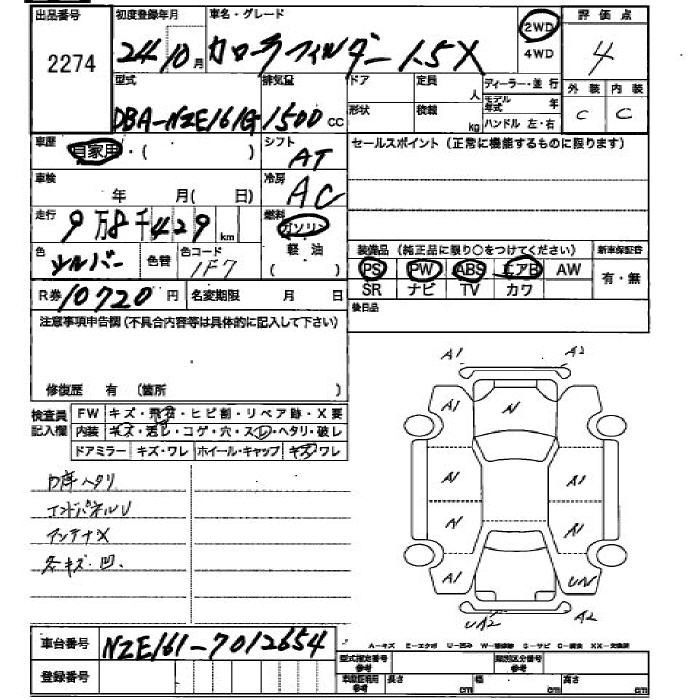 出品番号 初度登録年月 車名・グレード 2WD 評価点
2274 24 10月 カローラフィルダー 1.5X 4WD 4
型式 排気量 ドア 定員 人 ディーラー・並行 外装 内装
DBA-NZE161G 1500 cc 形状 積載 kg モデル年式 年 C C
ハンドル 左・右
車歴 自家用・( ) シフト AT セールスポイント(正常に機能するものに限ります)
車検 年 月( 日) 冷房 AC
走行 9万8千429km 燃料 ガソリン
軽油
( )
色 シルバー 色替 色コード 1F7
装備品(純正品に限り○をつけてください) 新車保証書
PS PW ABS エアB AW 有・無
SR ナビ TV カワ
R券 10720円 名変期限 月 日 後日品
注意事項申告欄(不具合内容等は具体的に記入して下さい)
修復歴 有 (箇所 )
検査員記入欄 FW キズ・飛石・ヒビ割・リペア跡・X要
内装 キズ・汚レ・コゲ・穴・スレ・ヘタリ・破レ
ドアミラー キズ・ワレ ホイール・キャップ キズ・ワレ
D席ヘタリ
インドパネルU
アンテナX
各キズ・凹.
A1 A2
A1 A1
A1 A1
A1
UA2 A2
車台番号 NZE161-7012654
登録番号
A-キズ E-エクボ U-凹み W-補修跡 S-サビ C-腐食 XX-交換済
型式指定番号 類別区分番号
車庫証明用参考 長さ cm 幅 cm 高さ cm